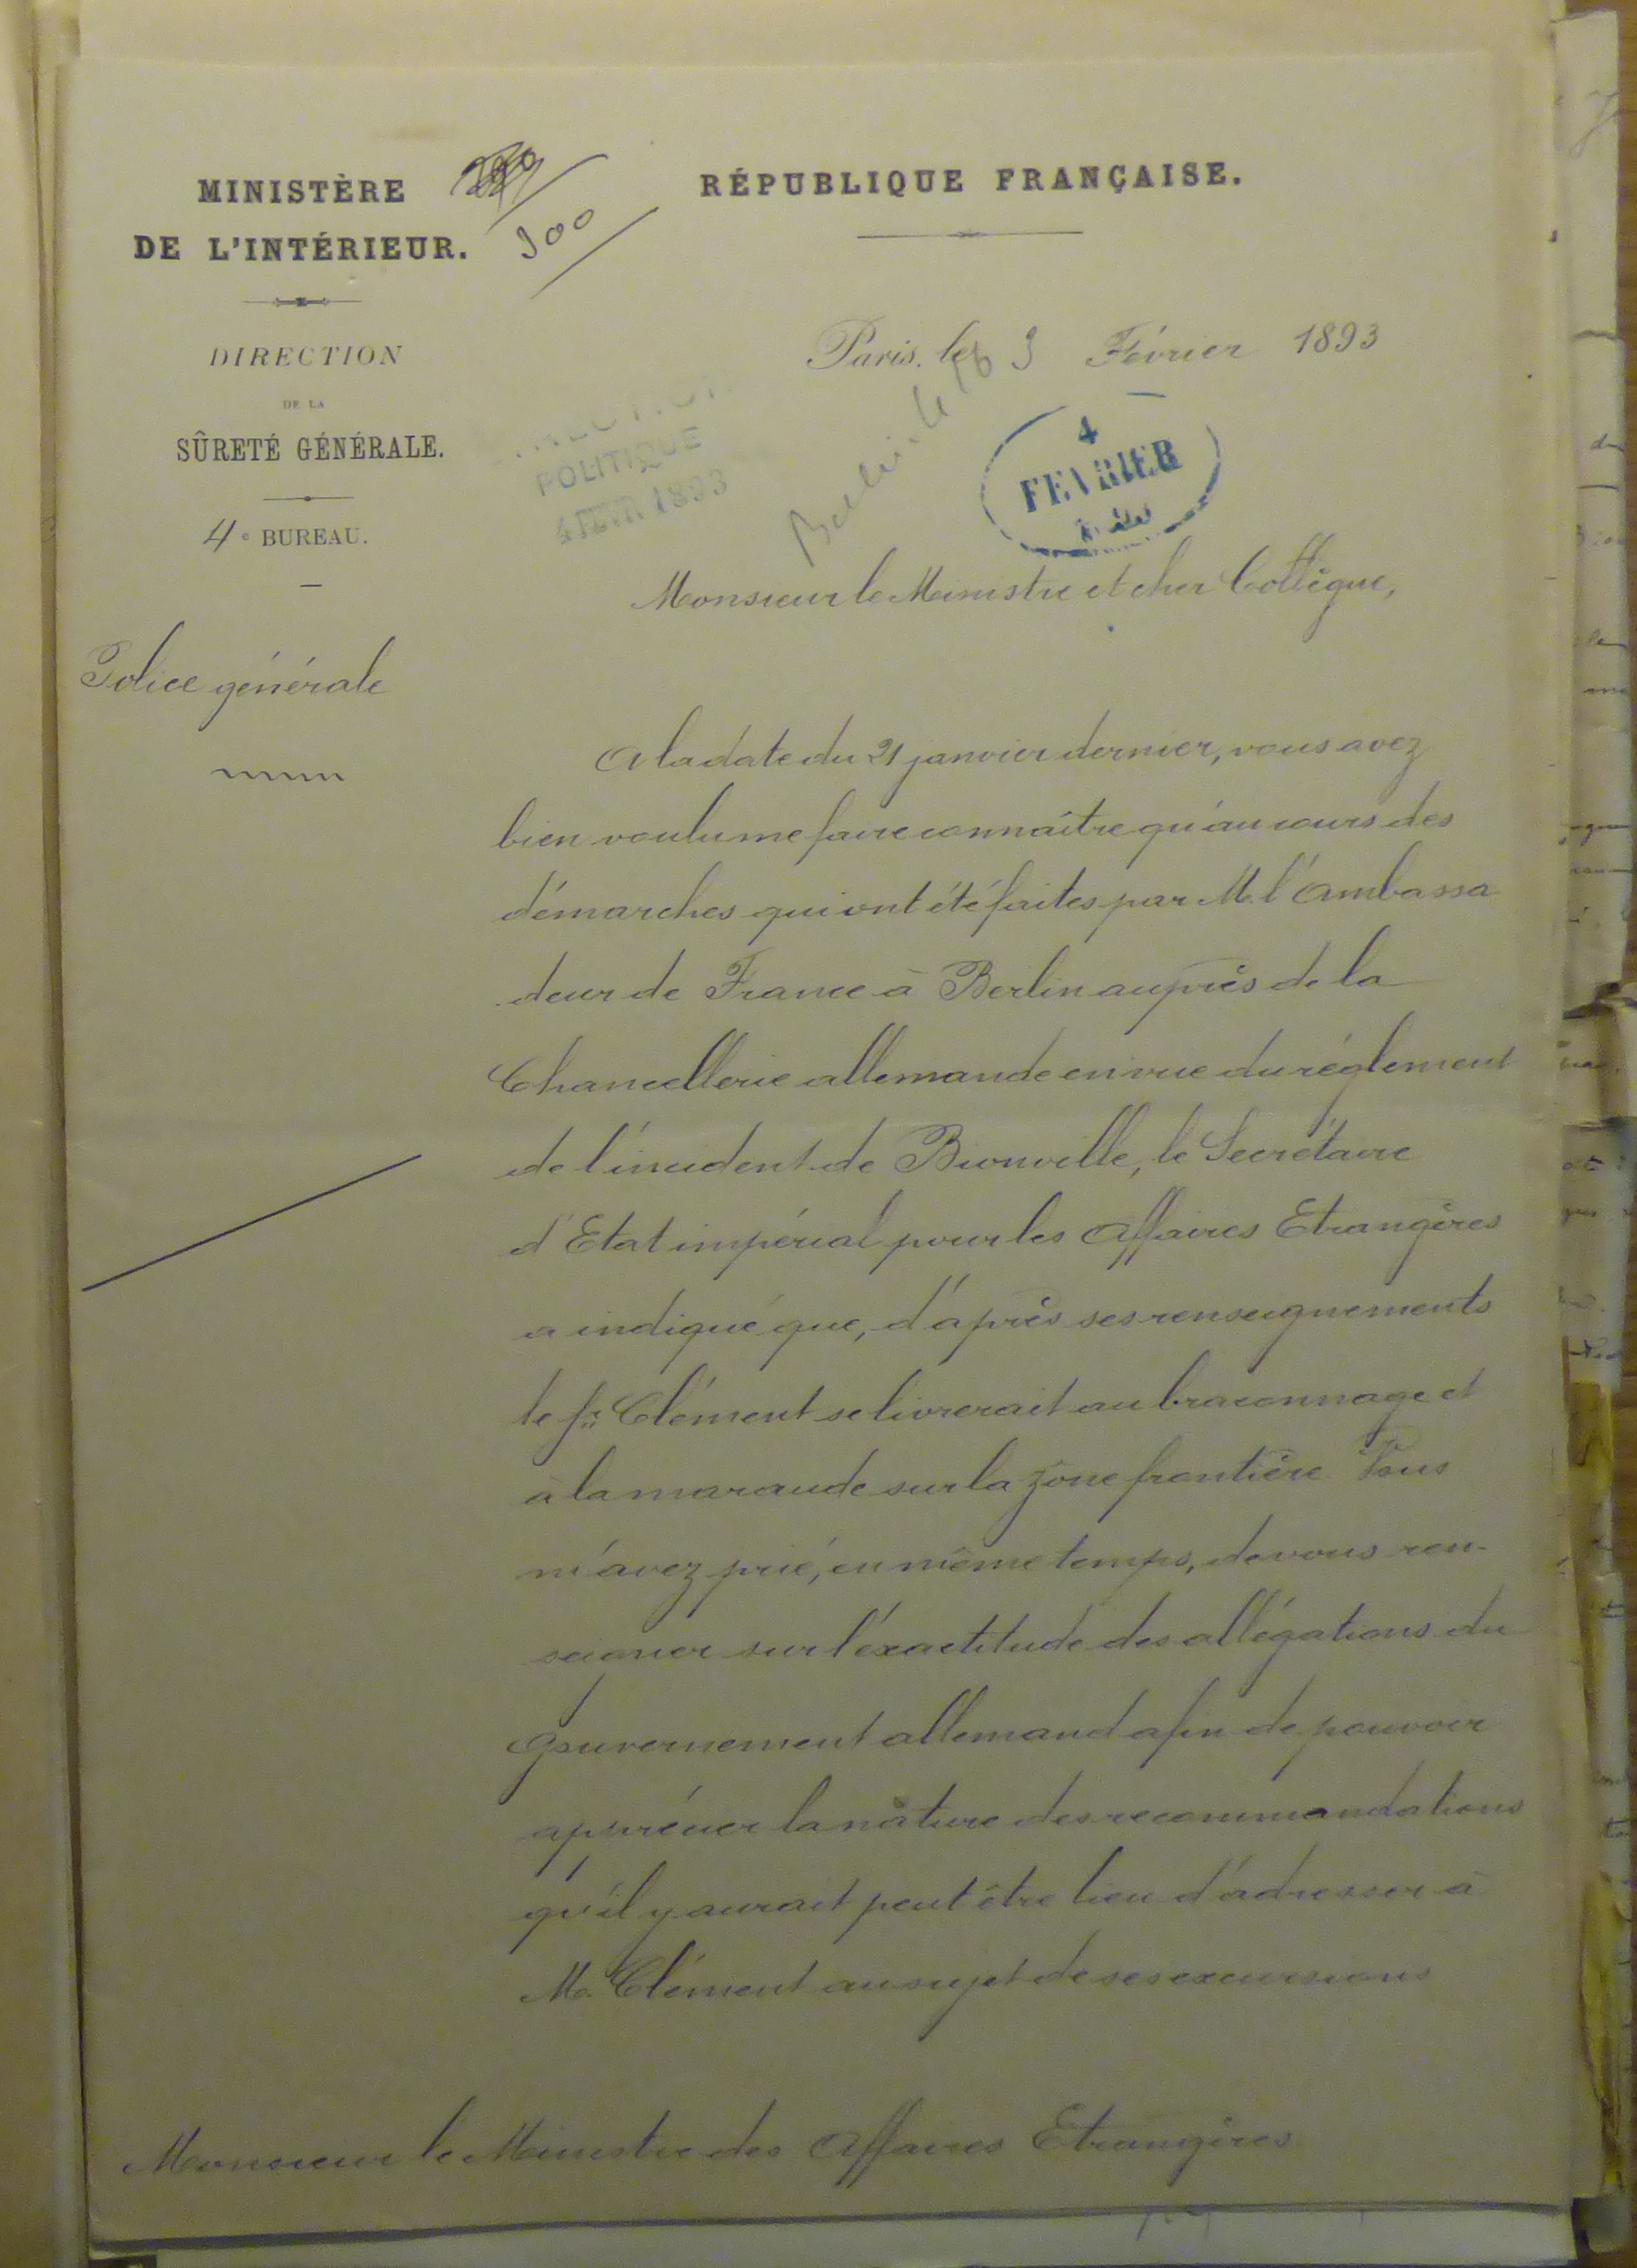 MINISTÈRE
DE L'INTÉRIEUR.
300
RÉPUBLIQUE FRANÇAISE.
DIRECTION
DE LA
SÛRETÉ GÉNÉRALE.
4e BUREAU.
Police générale
Paris, le 3 Février 1893
POLITIQUE
4 FEVR 1893
4
FEVRIER
Monsieur le Ministre et cher Collègue,
A la date du 21 janvier dernier, vous avez
bien voulu me faire connaître qu'au cours des
démarches qui ont été faites par M. l'Ambassa
deur de France à Berlin auprès de la
Chancellerie allemande en vue du réglement
de l'incident de Bionville, le Secrétaire
d'Etat impérial pour les Affaires Etrangères
a indiqué que, d'après ses renseignements
le sr. Clément se livrerait au braconnage et
à la maraude sur la zône frontière Vous
m'avez prié, en même temps, de vous ren-
seigner sur l'éxactitude des allégations du
Gouvernement allemand afin de pouvoir
apprécier la nature des recommandations
qu'il y aurait peut être lieu d'adresser à
M. Clément au sujet de ses excursions
Monsieur le Ministre des Affaires Etrangères